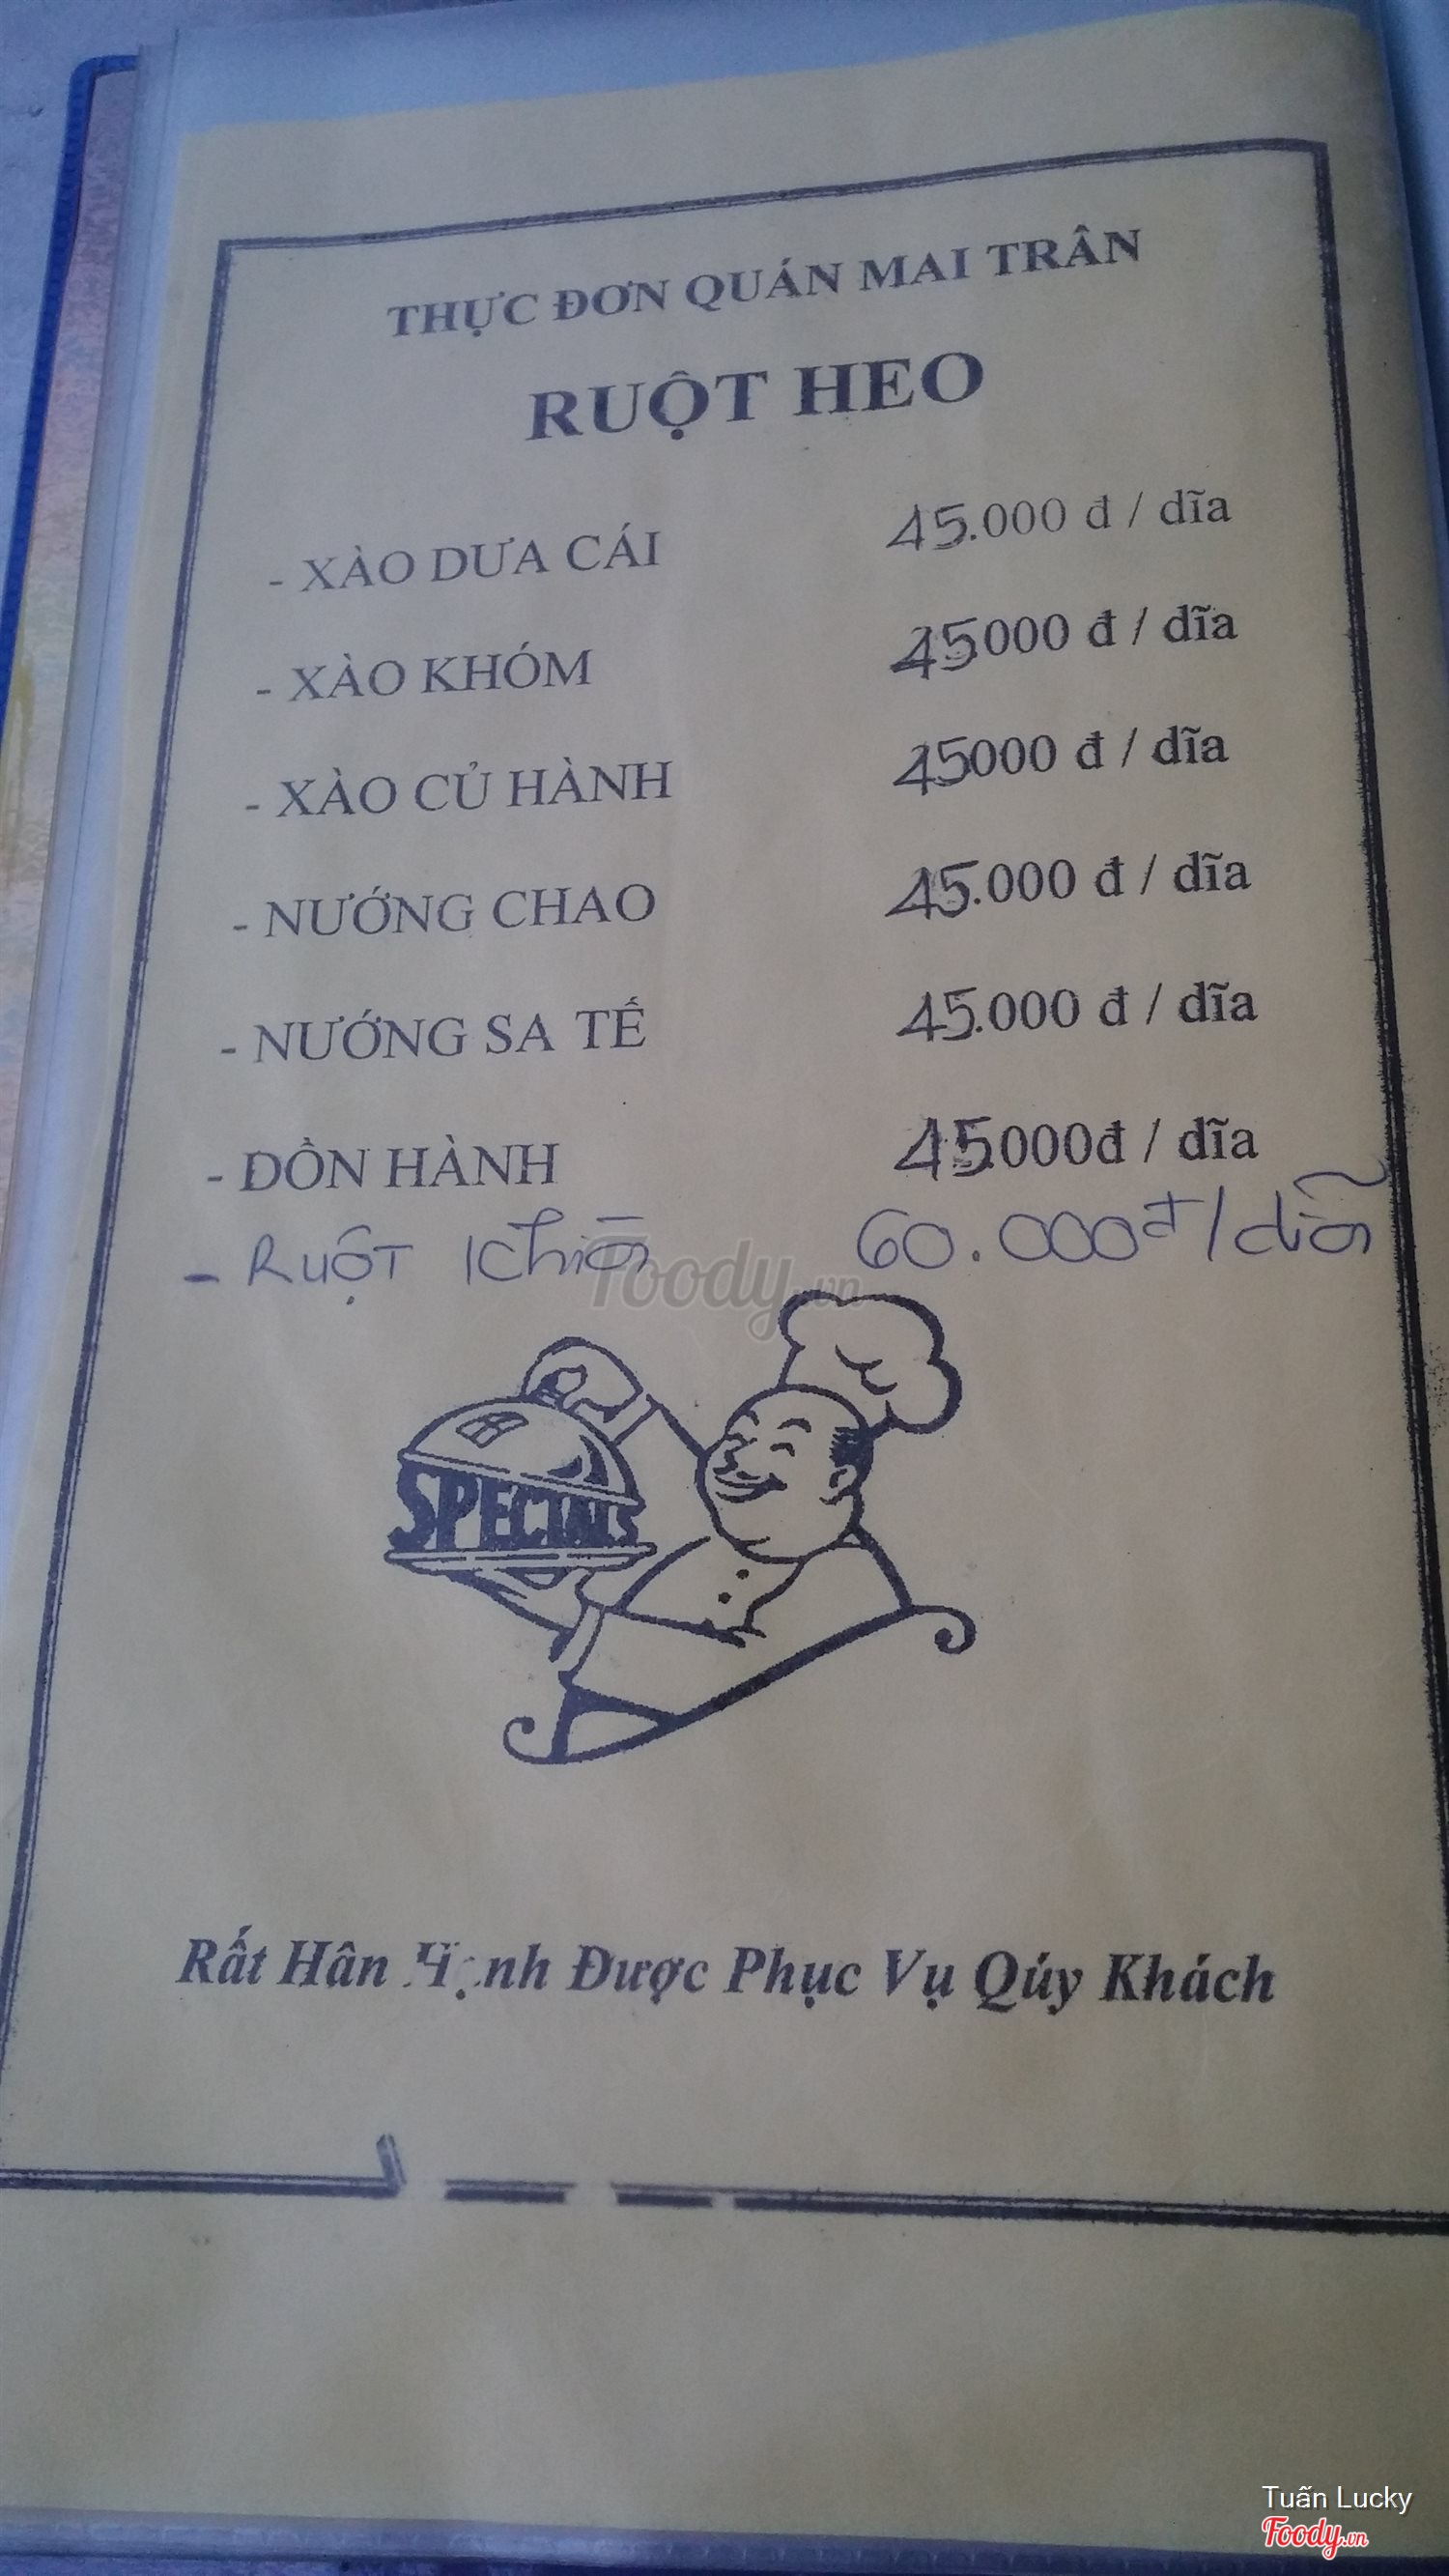 THỰC ĐƠN QUÁN MAI TRÂN
RUỘT HEO
- XÀO DƯA CÁI 45.000 đ / dĩa
- XÀO KHÓM 45000 đ / dĩa
- XÀO CỦ HÀNH 45000 đ / dĩa
- NƯỚNG CHAO 45.000 đ / dĩa
- NƯỚNG SA TẾ 45.000 đ / dĩa
- ĐỒN HÀNH 45000đ / dĩa
- Ruột 60.000đ/dĩa
Foody.vn
SPECIALS
Rất Hân Hạnh Được Phục Vụ Qúy Khách
Tuấn Lucky
Foody.vn